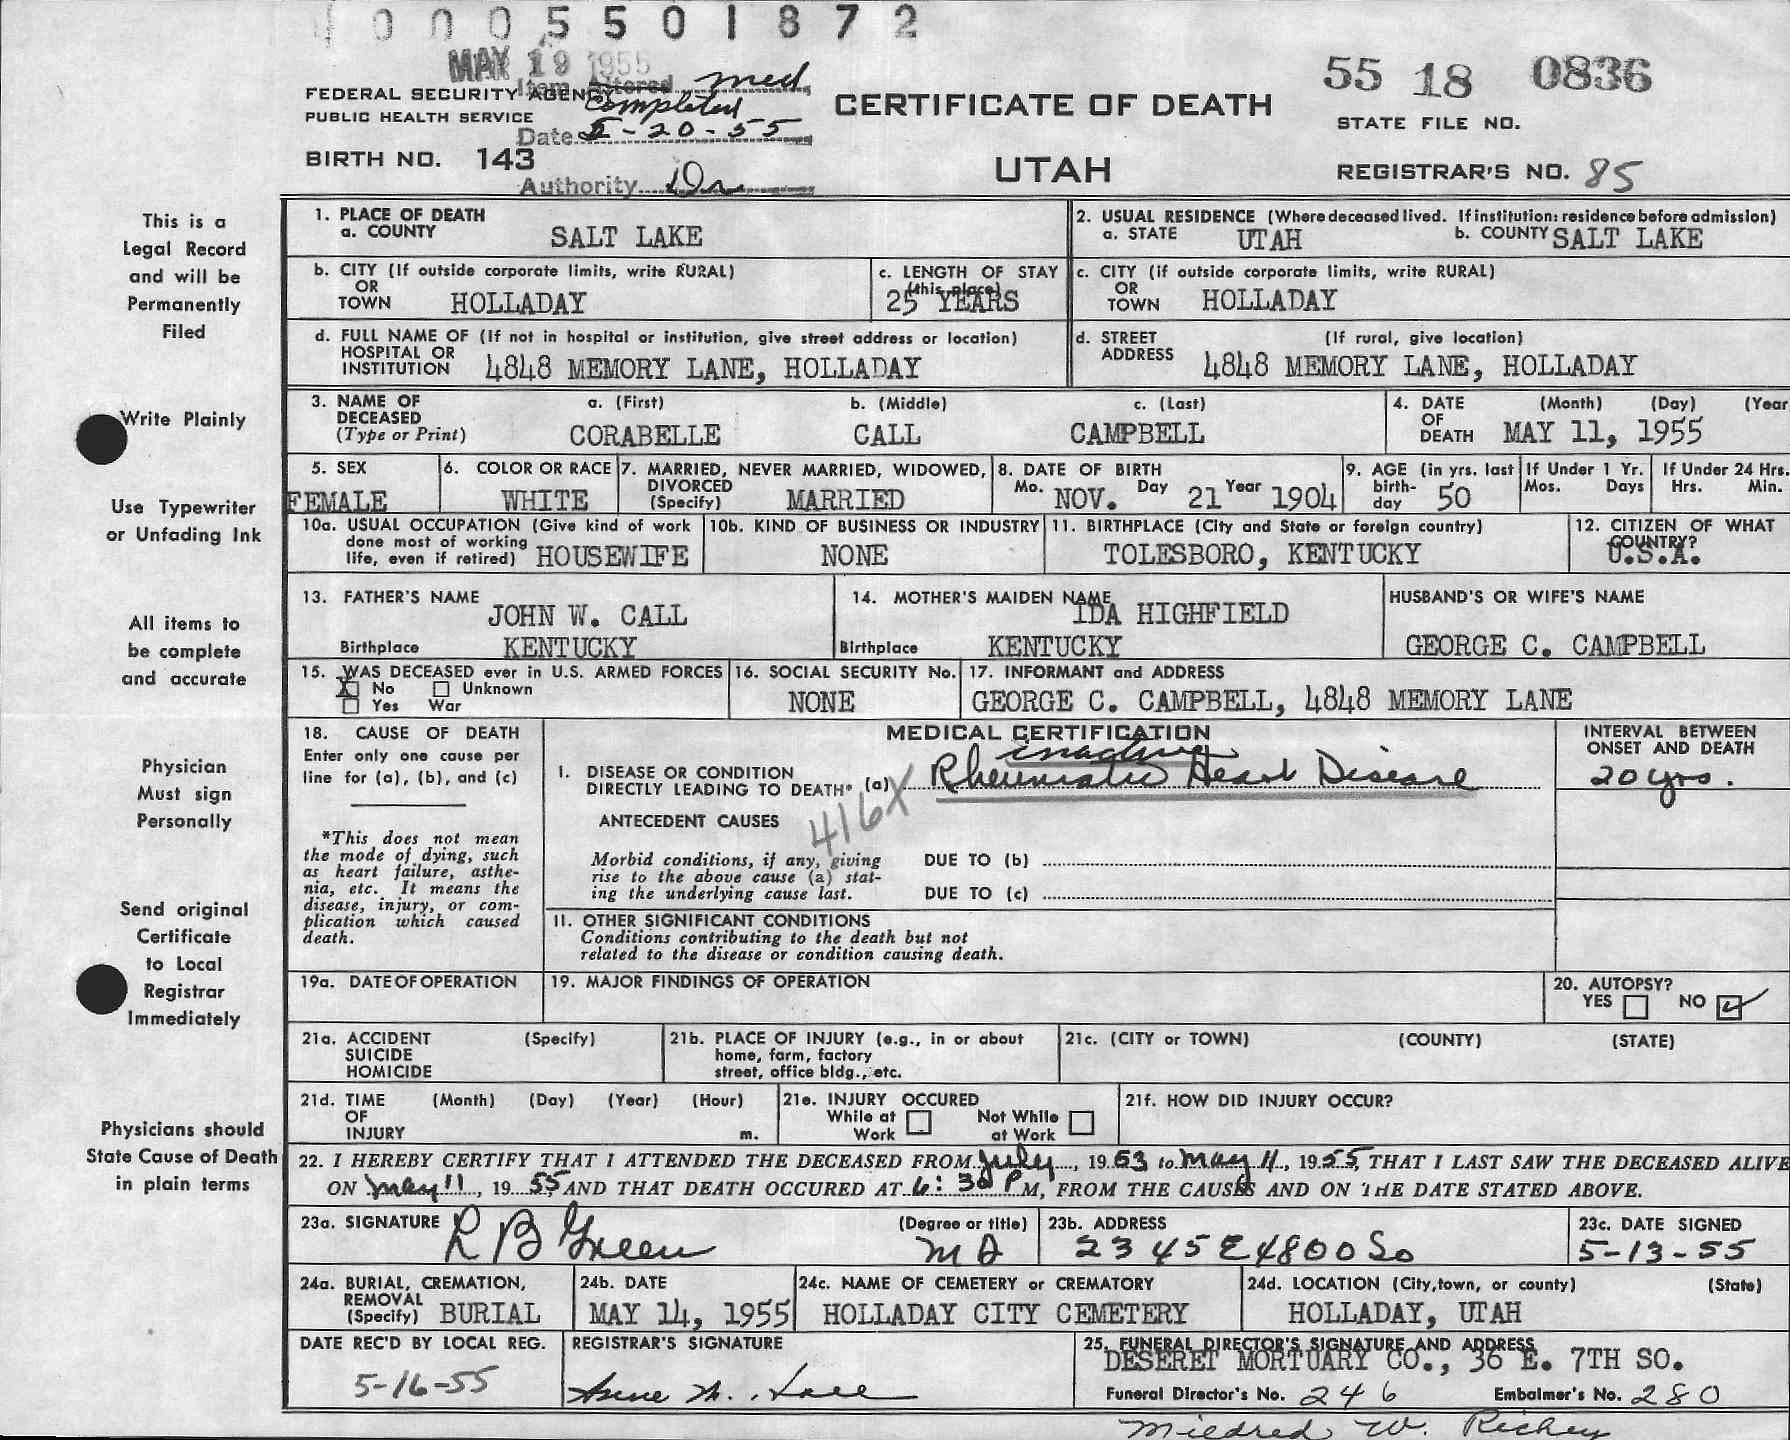 0 0 0 5 5 0 1 8 7 2
MAY 19 1955
55 18 0836
Item Altered med
FEDERAL SECURITY AGENCY completed
PUBLIC HEALTH SERVICE
Date 5-20-55
CERTIFICATE OF DEATH
STATE FILE NO.
BIRTH NO. 143
UTAH
REGISTRAR'S NO. 85
Authority Dr
This is a
Legal Record
and will be
Permanently
Filed
Write Plainly
Use Typewriter
or Unfading Ink
All items to
be complete
and accurate
Physician
Must sign
Personally
Send original
Certificate
to Local
Registrar
Immediately
Physicians should
State Cause of Death
in plain terms
1. PLACE OF DEATH
a. COUNTY SALT LAKE
2. USUAL RESIDENCE (Where deceased lived. If institution: residence before admission)
a. STATE UTAH b. COUNTY SALT LAKE
b. CITY (If outside corporate limits, write RURAL)
OR
TOWN HOLLADAY
c. LENGTH OF STAY
(this place)
25 YEARS
c. CITY (if outside corporate limits, write RURAL)
OR
TOWN HOLLADAY
d. FULL NAME OF (If not in hospital or institution, give street address or location)
HOSPITAL OR
INSTITUTION 4848 MEMORY LANE, HOLLADAY
d. STREET (If rural, give location)
ADDRESS 4848 MEMORY LANE, HOLLADAY
3. NAME OF a. (First) b. (Middle) c. (Last)
DECEASED
(Type or Print) CORABELLE CALL CAMPBELL
4. DATE (Month) (Day) (Year
OF
DEATH MAY 11, 1955
5. SEX
FEMALE
6. COLOR OR RACE
WHITE
7. MARRIED, NEVER MARRIED, WIDOWED,
DIVORCED
(Specify) MARRIED
8. DATE OF BIRTH
Mo. NOV. Day 21 Year 1904
9. AGE (in yrs. last
birth-
day 50
If Under 1 Yr.
Mos. Days
If Under 24 Hrs.
Hrs. Min.
10a. USUAL OCCUPATION (Give kind of work
done most of working
life, even if retired) HOUSEWIFE
10b. KIND OF BUSINESS OR INDUSTRY
NONE
11. BIRTHPLACE (City and State or foreign country)
TOLESBORO, KENTUCKY
12. CITIZEN OF WHAT
COUNTRY?
U.S.A.
13. FATHER'S NAME
JOHN W. CALL
Birthplace KENTUCKY
14. MOTHER'S MAIDEN NAME
IDA HIGHFIELD
Birthplace KENTUCKY
HUSBAND'S OR WIFE'S NAME
GEORGE C. CAMPBELL
15. WAS DECEASED ever in U.S. ARMED FORCES
X No Unknown
Yes War
16. SOCIAL SECURITY No.
NONE
17. INFORMANT and ADDRESS
GEORGE C. CAMPBELL, 4848 MEMORY LANE
18. CAUSE OF DEATH
Enter only one cause per
line for (a), (b), and (c)
*This does not mean
the mode of dying, such
as heart failure, asthe-
nia, etc. It means the
disease, injury, or com-
plication which caused
death.
MEDICAL CERTIFICATION
inactive
I. DISEASE OR CONDITION
DIRECTLY LEADING TO DEATH* (a) Rheumatic Heart Disease
416X
ANTECEDENT CAUSES
Morbid conditions, if any, giving
rise to the above cause (a) stat-
ing the underlying cause last.
DUE TO (b)
DUE TO (c)
INTERVAL BETWEEN
ONSET AND DEATH
20 yrs.
II. OTHER SIGNIFICANT CONDITIONS
Conditions contributing to the death but not
related to the disease or condition causing death.
19a. DATE OF OPERATION
19. MAJOR FINDINGS OF OPERATION
20. AUTOPSY?
YES NO ✓
21a. ACCIDENT (Specify)
SUICIDE
HOMICIDE
21b. PLACE OF INJURY (e.g., in or about
home, farm, factory
street, office bldg., etc.
21c. (CITY or TOWN) (COUNTY) (STATE)
21d. TIME (Month) (Day) (Year) (Hour)
OF
INJURY m.
21e. INJURY OCCURED
While at Not While
Work at Work
21f. HOW DID INJURY OCCUR?
22. I HEREBY CERTIFY THAT I ATTENDED THE DECEASED FROM July, 1953 to May 11, 1955, THAT I LAST SAW THE DECEASED ALIVE
ON May 11, 1955, AND THAT DEATH OCCURED AT 6:30 P M, FROM THE CAUSES AND ON THE DATE STATED ABOVE.
23a. SIGNATURE R B Green
(Degree or title)
MD
23b. ADDRESS
2345 E 4800 So
23c. DATE SIGNED
5-13-55
24a. BURIAL, CREMATION,
REMOVAL
(Specify) BURIAL
24b. DATE
MAY 14, 1955
24c. NAME OF CEMETERY or CREMATORY
HOLLADAY CITY CEMETERY
24d. LOCATION (City, town, or county) (State)
HOLLADAY, UTAH
DATE REC'D BY LOCAL REG.
5-16-55
REGISTRAR'S SIGNATURE
25. FUNERAL DIRECTOR'S SIGNATURE AND ADDRESS
DESERET MORTUARY CO., 36 E. 7TH SO.
Funeral Director's No. 246 Embalmer's No. 280
Mildred W. Richey